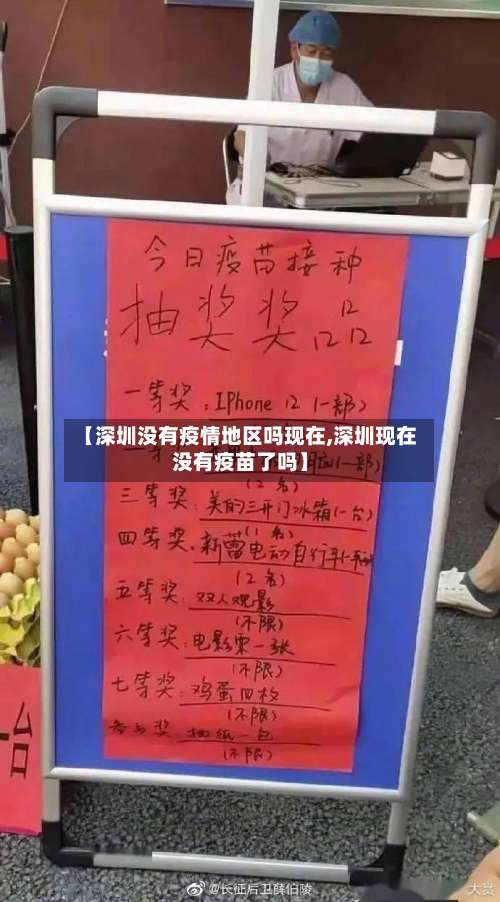 今日疫苗接种
抽奖奖品
一等奖：IPhone 12 (一部)
【深圳没有疫情地区吗现在,深圳现在
没有疫苗了吗】
(一部)
(2名)
三等奖：美的三开门冰箱(一台)
(1名)
四等奖：新蕾电动自行车
(2名)
五等奖：双人观影
(不限)
六等奖：电影票一张
(不限)
七等奖：鸡蛋四枚
(不限)
参与奖 抽纸一包
(不限)
一台
@长征后卫薛伯陵
大贵